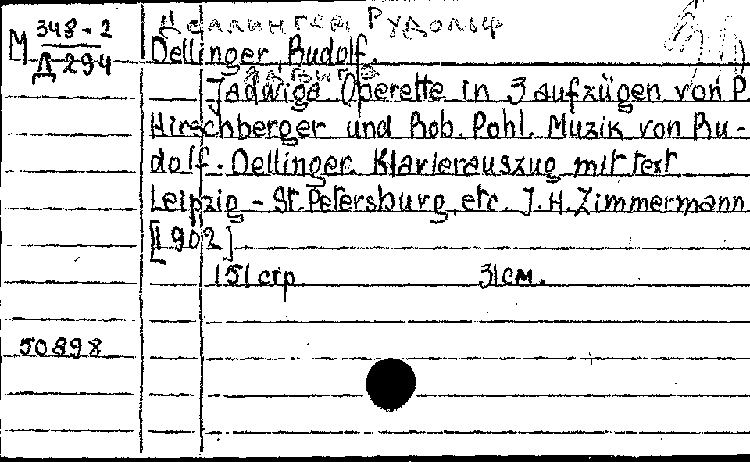 Деллингер Рудольф
М 348-2
Д-294
Dellinger, Rudolf.
Ядвига
Jadwiga. Operette in 3 aufzügen von P.
Hirschberger und Rob. Pohl. Muzik von Ru-
dolf. Dellinger. Klavierauszug mit text
Leipzig - St. Petersburg, etc. J. H. Zimmermann
[1902]
151 стр. 31 см.
50898